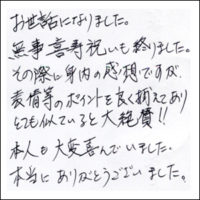 お世話になりました。
無事喜寿祝いも終りました。
その際に身内の感想ですが、
表情等のポイントを良く捕えてあり
とても似ていると大絶賛!!
本人も大変喜んでいました。
本当にありがとうございました。